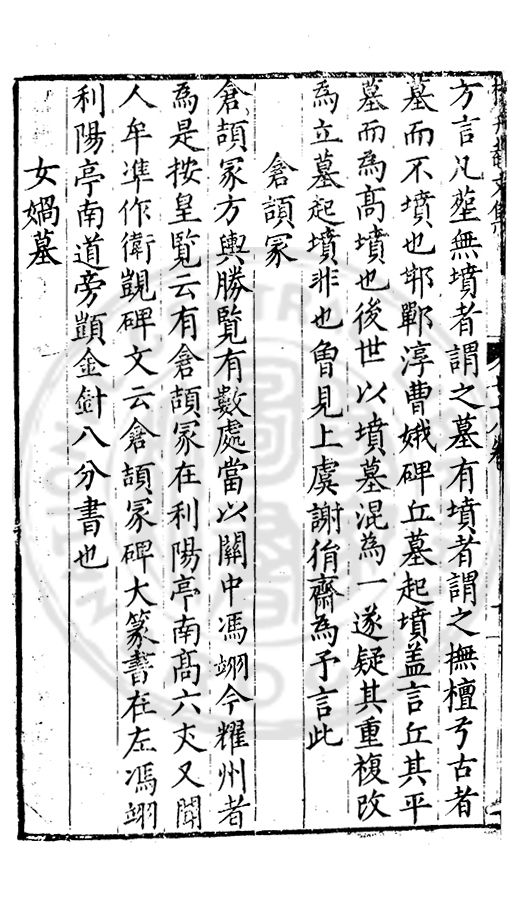 方言凡塟無墳者謂之墓有墳者謂之撫檀弓古者
墓而不墳也邯鄲淳曹娥碑丘墓起墳盖言丘其平
墓而為髙墳也後世以墳墓混為一遂疑其重複改
為立墓起墳非也曽見上虞謝徟齋為予言此
倉頡冢
倉頡冢方輿勝覧有數處當以關中馮翊今耀州者
為是按皇覧云有倉頡冢在利陽亭南髙六丈又聞
人牟準作衛覬碑文云倉頡冢碑大篆書在左馮翊
利陽亭南道旁顗金針八分書也
女媧墓